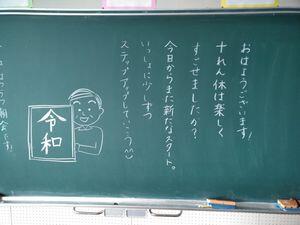 おはようございます!
十れん休は楽しく
すごせましたか?
今日からまた新たなスタート。
いっしょに少しずつ
ステップアップしていこう
令和